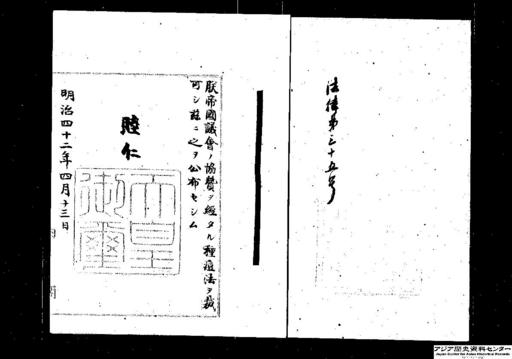 法律第三十五号
朕帝國議會ノ協賛ヲ經タル種痘法ヲ裁
可シ茲ニ之ヲ公布セシム
睦仁
天皇御璽
明治四十二年四月十三日
アジア歴史資料センター
Japan Center for Asian Historical Records